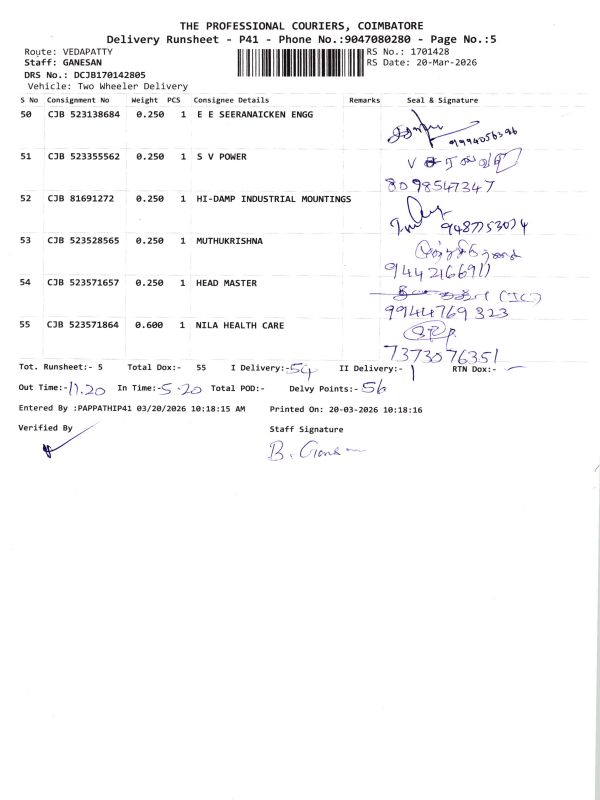 THE PROFESSIONAL COURIERS, COIMBATORE
Delivery Runsheet - P41 - Phone No.:9047080280 - Page No.:5
Route: VEDAPATTY
RS No.: 1701428
Staff: GANESAN
RS Date: 20-Mar-2026
DRS No.: DCJB170142805
Vehicle: Two Wheeler Delivery
S No Consignment No Weight PCS Consignee Details Remarks Seal & Signature
50 CJB 523138684 0.250 1 E E SEERANAICKEN ENGG
9994056396
51 CJB 523355562 0.250 1 S V POWER
8098547347
52 CJB 81691272 0.250 1 HI-DAMP INDUSTRIAL MOUNTINGS
9487753074
53 CJB 523528565 0.250 1 MUTHUKRISHNA
9442166911
54 CJB 523571657 0.250 1 HEAD MASTER
9944769323
55 CJB 523571864 0.600 1 NILA HEALTH CARE
7373076351
Tot. Runsheet:- 5 Total Dox:- 55 I Delivery:-54 II Delivery:- 1 RTN Dox:- -
Out Time:-11.20 In Time:-5.20 Total POD:- Delvy Points:-56
Entered By :PAPPATHIP41 03/20/2026 10:18:15 AM Printed On: 20-03-2026 10:18:16
Verified By Staff Signature
B. Ganesan